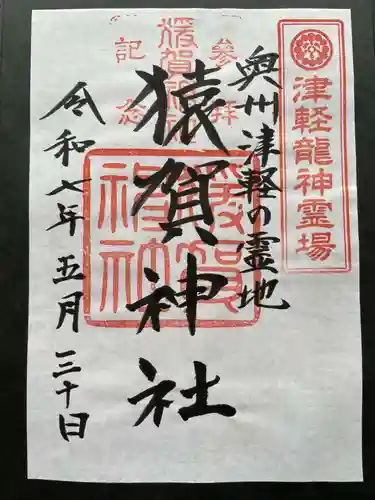 津軽龍神霊場
奥州津軽の霊地
参拝
猿賀神社
記念
猿賀神社
猿賀神社
令和七年五月三十日